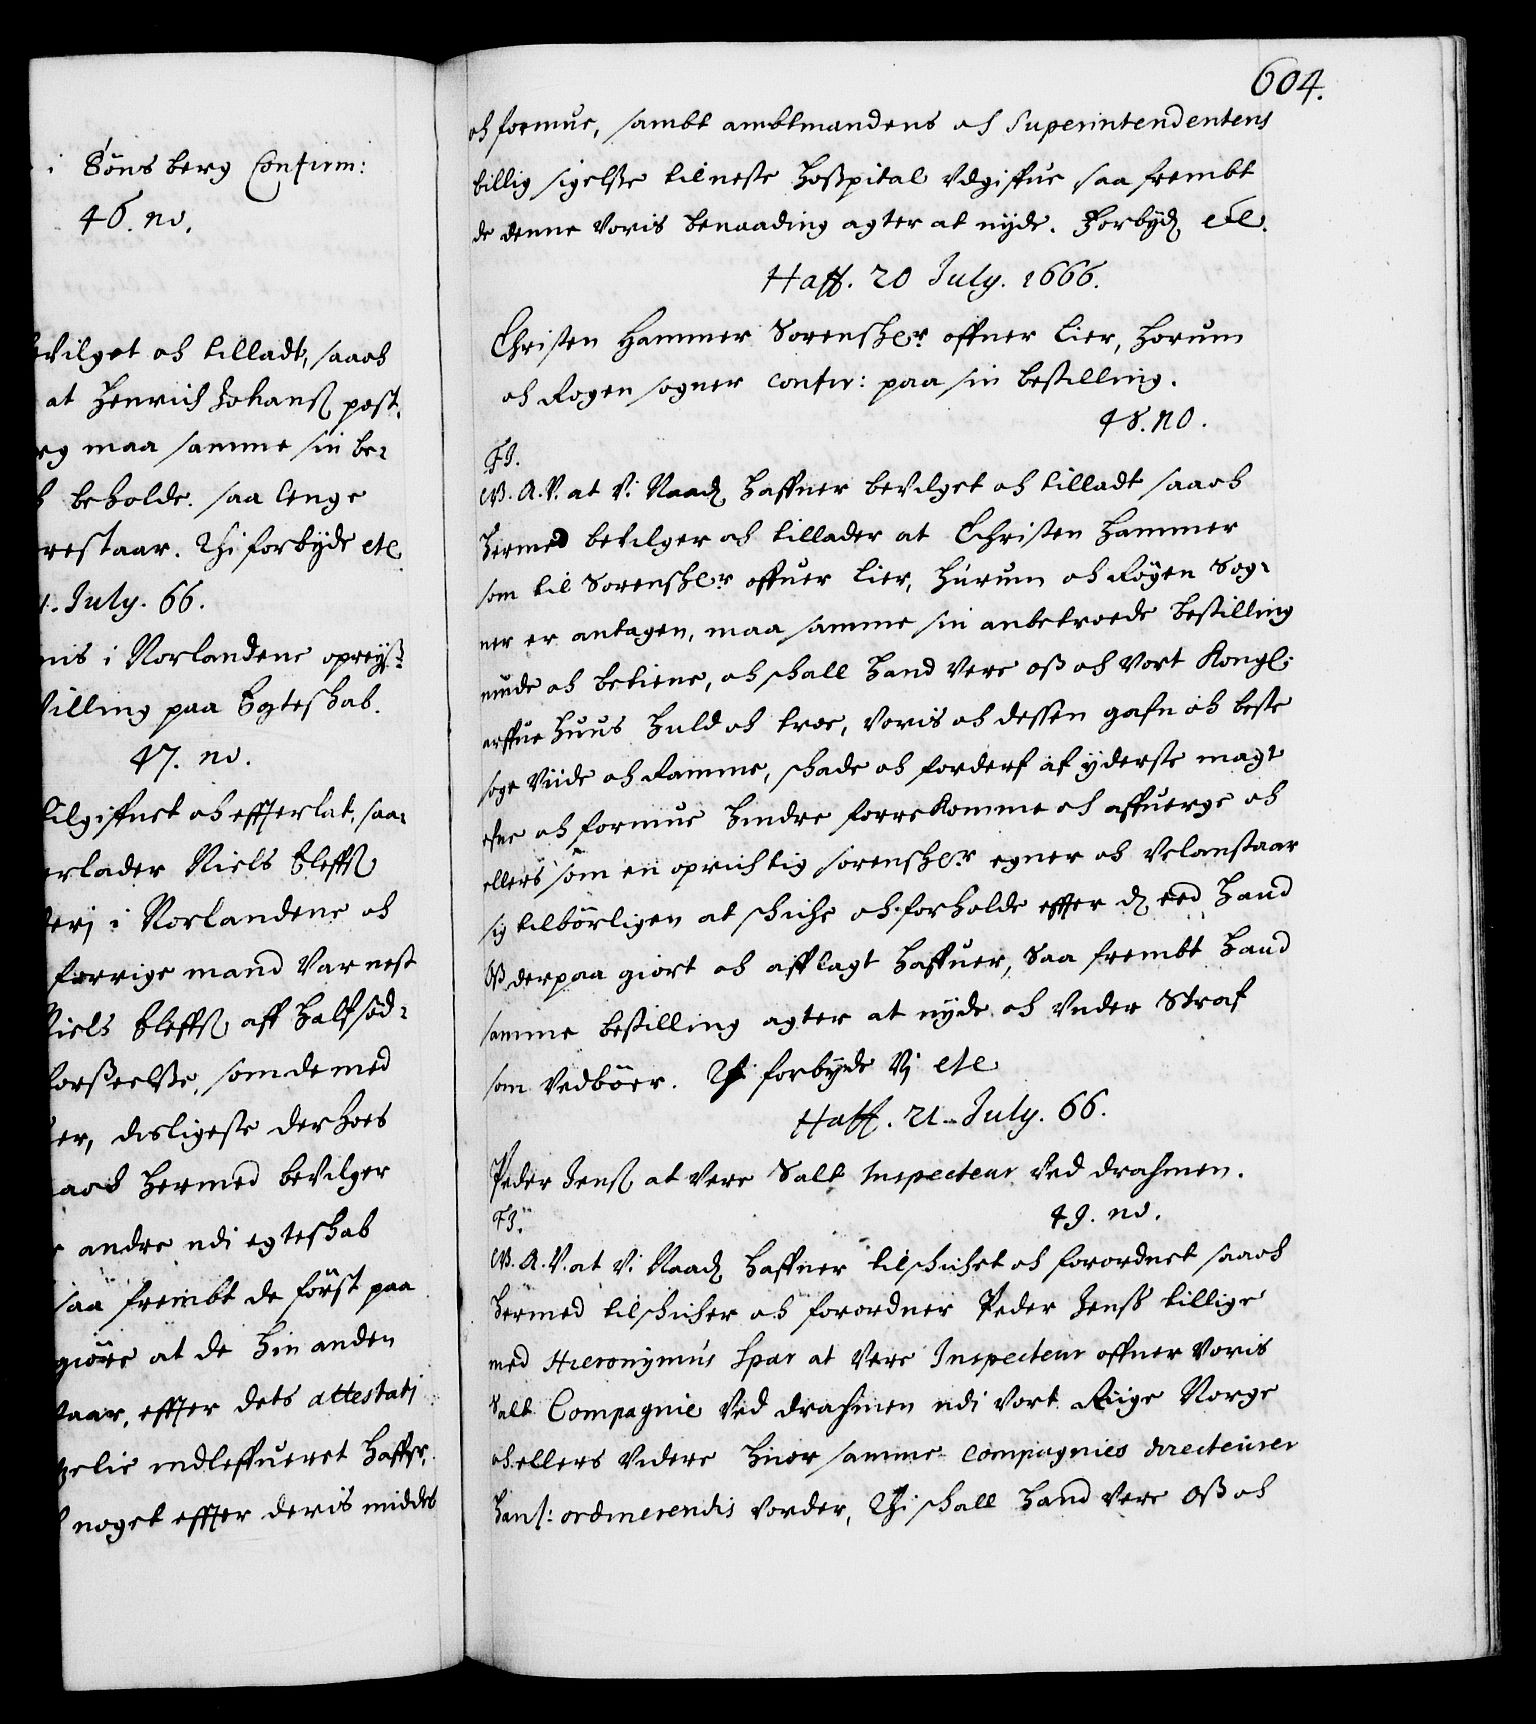 i Tönsberg Confirm:
46. no.
evilget och tilladt, saaoch
at Henrich Johanß post,
erg maa samme sin be-
beholde. saa lenge
restaar. Thi forbyde etc
1. July. 66.
nis i Norlandene opreyß-
tilling paa Egteskab.
47. no.
tilgiffuet och effterlat, saa-
erlader Niels Eleffß
terj i Norlandene och
forrige mand Var nest
Niels Eleffß aff halfsöd-
forseelße, som de med
er, disligeste der hoes
aaoch hermed bevilger
andre udi egteskab
saa frembt de först paa
giöre at de hin anden
taar, effter dets attestati
indleffueret haffr,
noget effter deris middel
604.
och formue, sambt ambtmandens och Superintendentens
billig sigelße til neste Hoßpital udgiffue saa frembt
de denne Voris benaading agter at nyde. Forbydz etc.
Haff. 20 July. 1666.
Christen Hammer Sorenskr offuer Lier, Horum
och Rogen sogner confir: paa sin bestilling.
48. no.
F3.
G. A. V. at Vi Naadz haffuer bevilget och tilladt saaoch
hermed bevilger och tillader at Christen Hammer
som til Sorenskr offuer Lier, Hurum och Röyen Sog-
ner er antagen, maa samme sin anbetroede bestilling
niude och betiene, och schall hand Vere oß och Vort Kongl:
arffue Huus huld och troe, Voris och dessen gafn och beste
söge Viide och Ramme, schade och forderf af yderste magt
efne och formue hindre forrekomme och affuerge och
ellers som en oprichtig sorenskr egner och Velanstaar
sig tilbörligen at schicke och forholde effter dz eed hand
Oß derpaa giort och afflagt haffuer, Saa frembt hand
samme bestilling agter at nyde och under Straf
som Vedböer. Thi forbyde Vj etc
Haff. 21. July. 66.
Peder Jenß at Vere Salt Inspecteur Ved drahmen.
F3. 49. no.
G. A. V. at Vi Naadz haffuer tilschicket och forordnet saaoch
hermed tilschicker och forordner Peder Jenß tillige
med Hieronymus Spar at Vere Inspecteur offuer Voris
Salt Compagnie Ved drahmen udi Vort Riige Norge
och ellers Videre huor samme compagnies directeurer
hanß: ordinerendis Vorder, Thi schall hand Vere Oß och